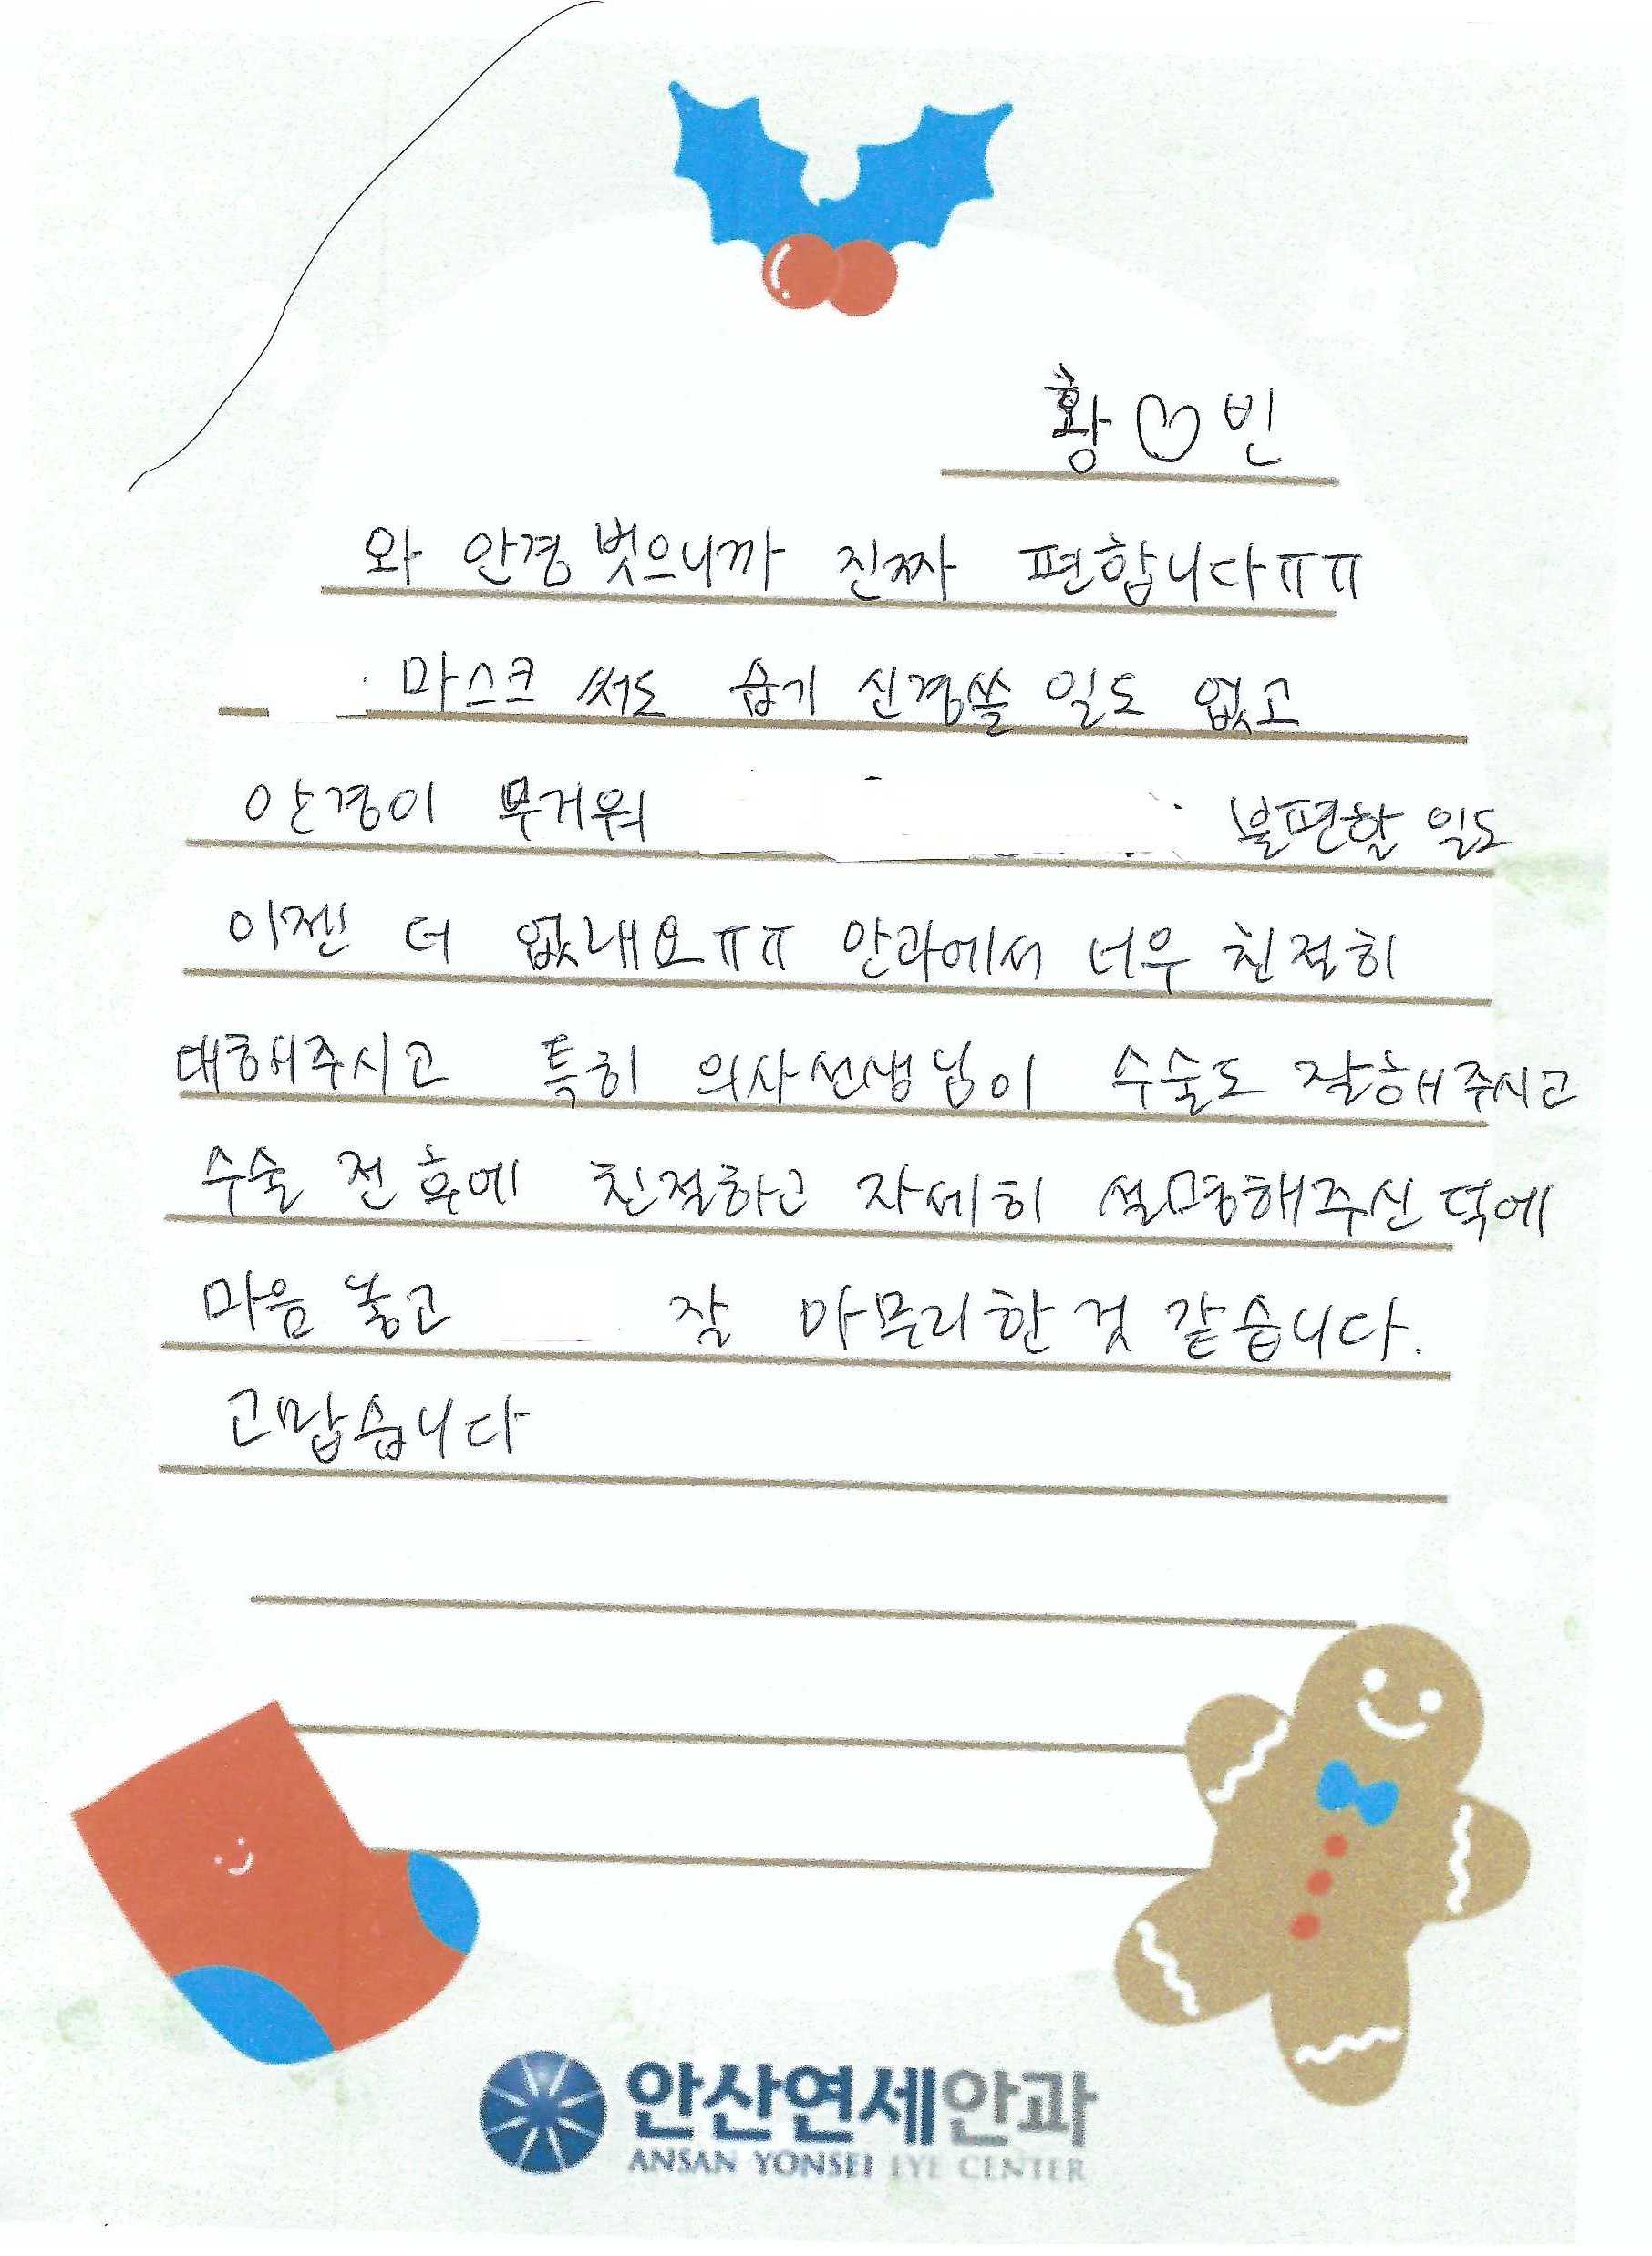 황♡빈
와 안경 벗으니까 진짜 편합니다ㅠㅠ
마스크 써도 습기 신경쓸 일도 없고
안경이 무거워 불편할 일도
이젠 더 없내요ㅠㅠ 안과에서 너무 친절히
대해주시고 특히 의사선생님이 수술도 잘해주시고
수술 전 후에 친절하고 자세히 설명해주신 덕에
마음 놓고 잘 마무리한 것 같습니다.
고맙습니다
안산연세안과
ANSAN YONSEI EYE CENTER